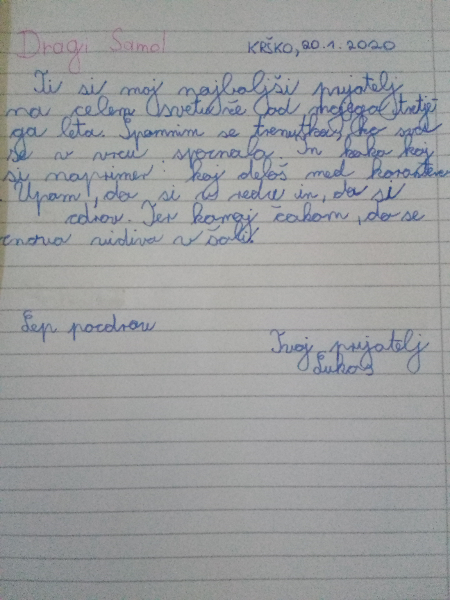 Dragi Samo!
KRŠKO, 20.1.2020
Ti si moj najboljši prijatelj
na celem svetu že od mojega tretje
ga leta. Spomnim se trenutka, ko sva
se v vrcu spoznala. In kako kaj
si naprimer kaj delaš med karanteno
Upam, da si v redu in, da si
zdrav. Ter komaj čakam, da se
znova vidiva v šoli.
Lep pozdrav
Tvoj prijatelj
Lukas